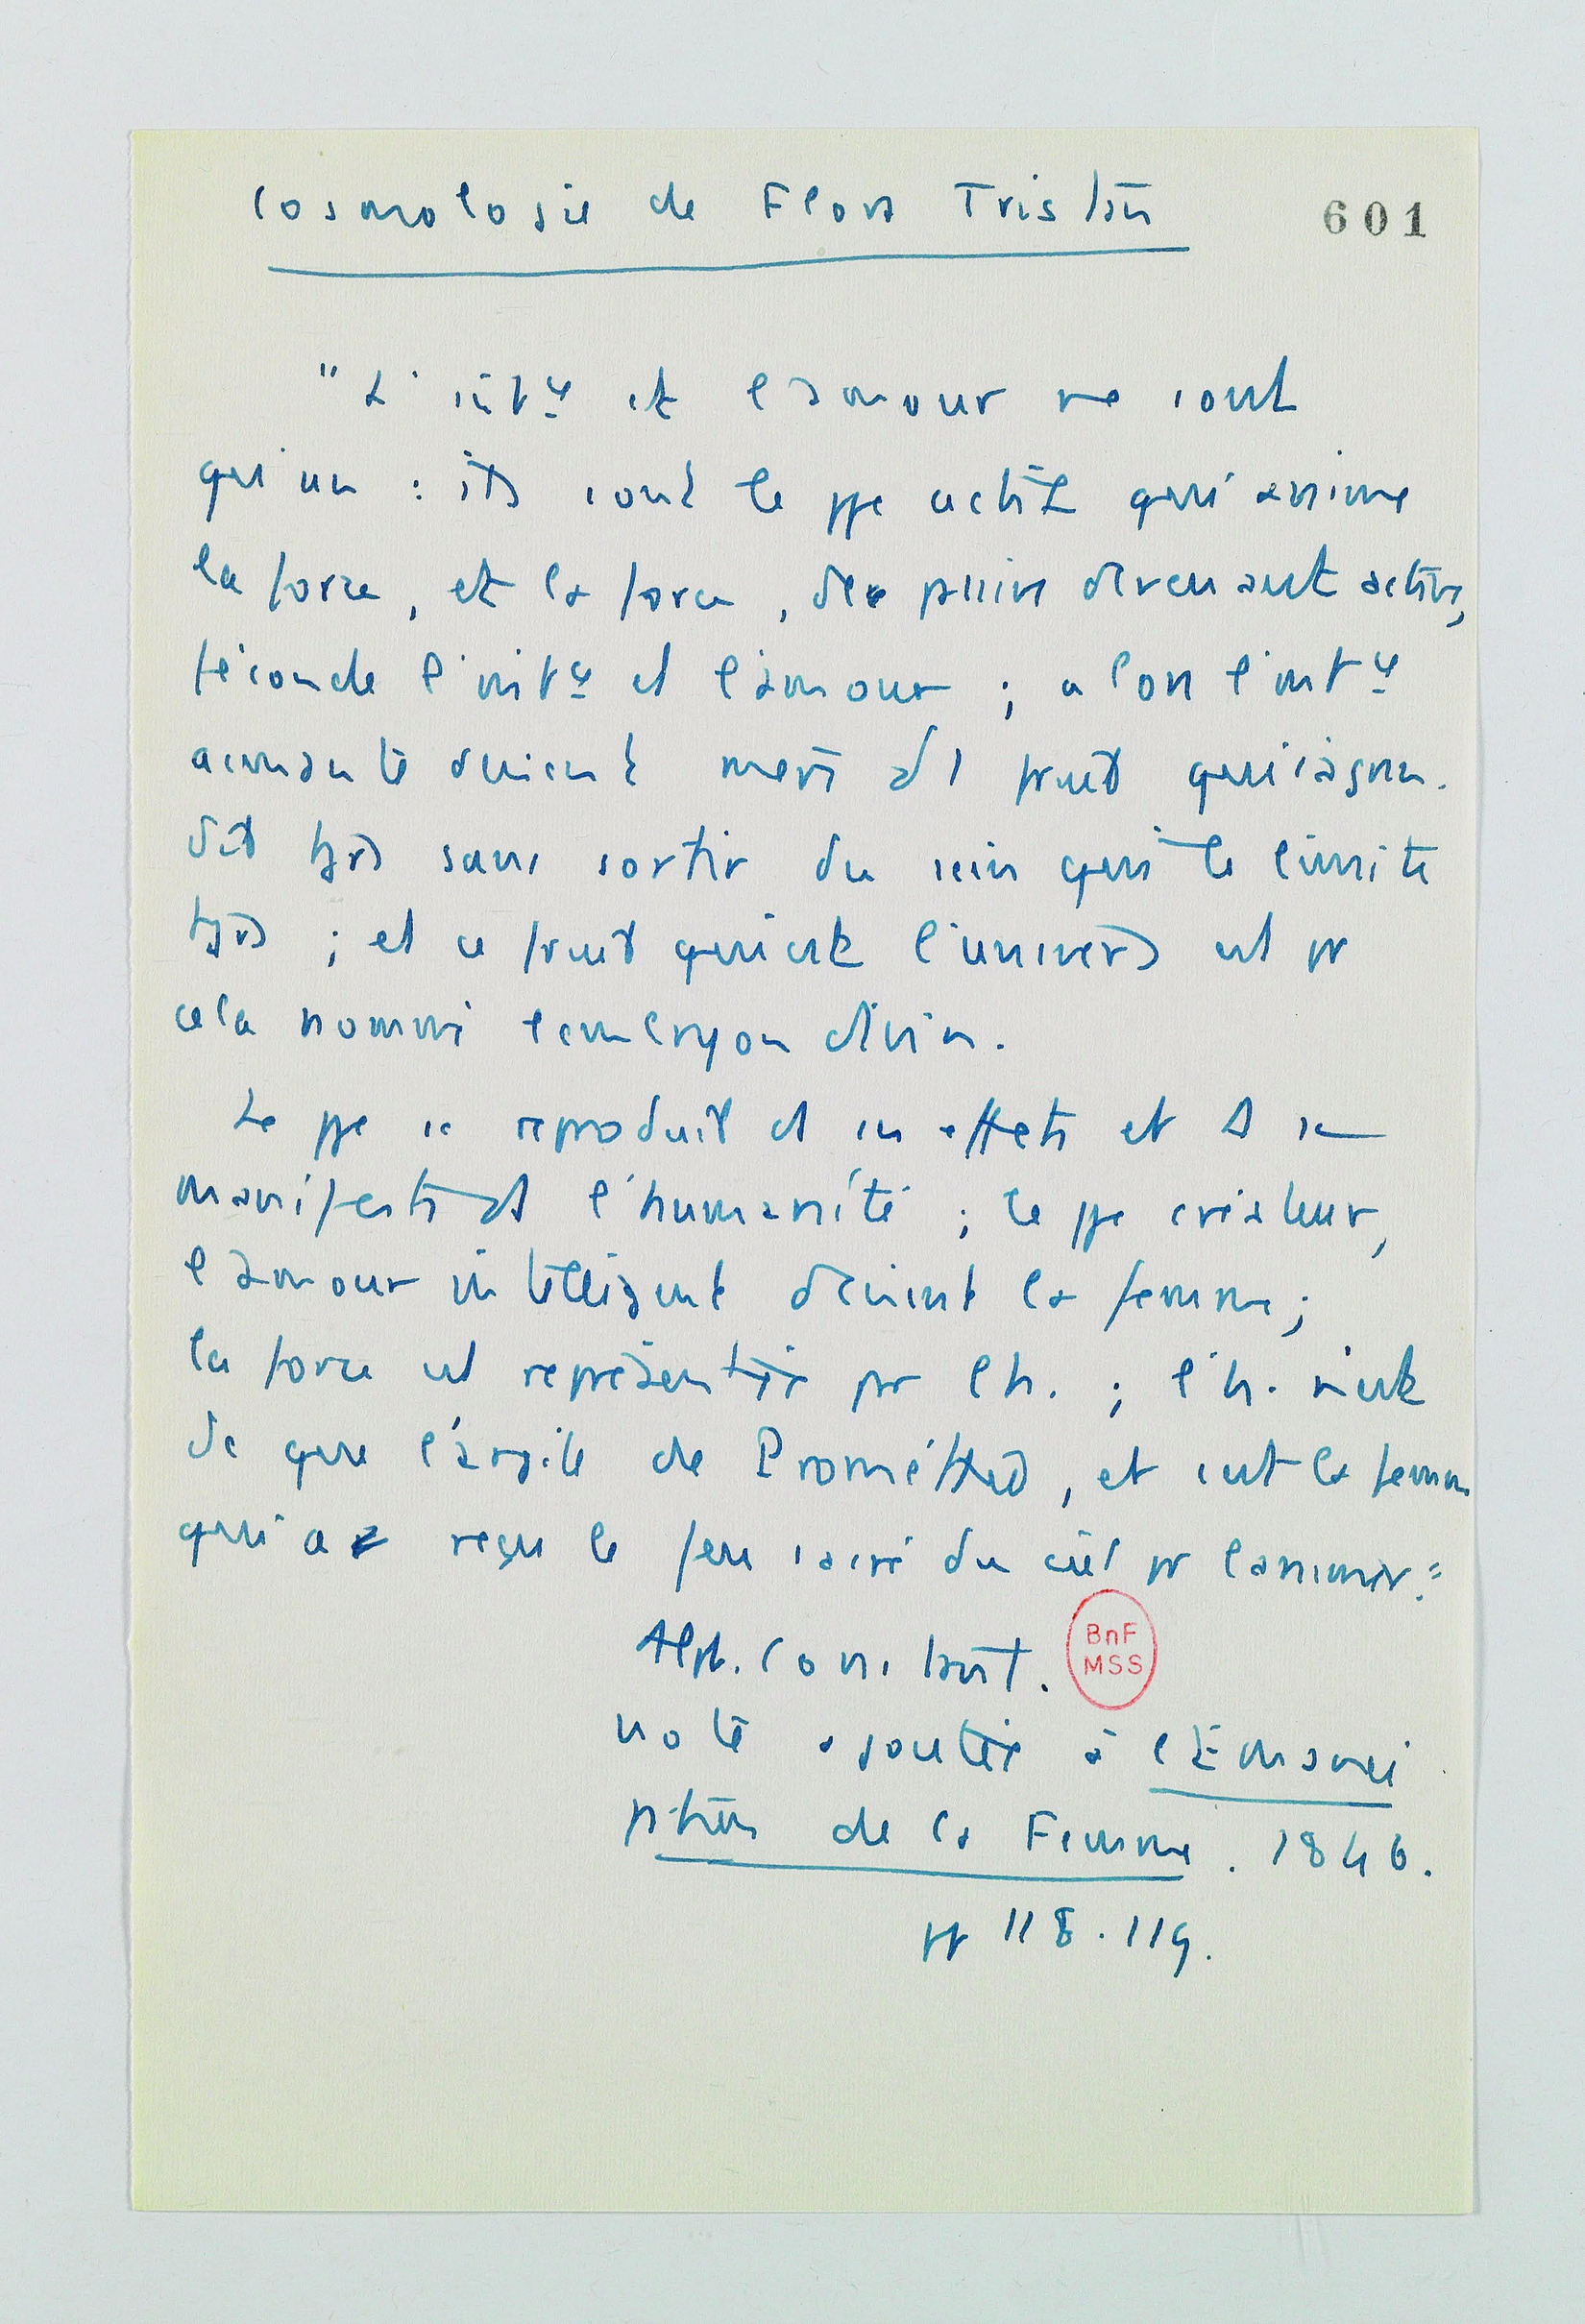 Cosmologie de Flora Tristan
601
"L'intce et l'amour ne sont
qu'un : ils sont le ppe actif qui anime
la force, et la force, de passive devenant active,
féconde l'intce et l'amour ; alors l'intce
aimante devient mère d'1 fruit qui s'agran-
dit tjrs sans sortir du sein qui le limite
tjrs ; et ce fruit qui est l'univers est pr
cela nommé l'embryon divin.
Le ppe se reproduit ds ses effets et se
manifeste ds l'humanité ; le ppe créateur,
l'amour intelligent devient la femme ;
la force est représentée par l'h. ; l'h. n'est
dc que l'argile de Prométhée, et c'est la femme
qui a reçu le feu sacré du ciel pr l'animer."
Alph. Constant.
BnF
MSS
note ajoutée à l'Émanci
pation de la Femme. 1846.
pp 118.119.